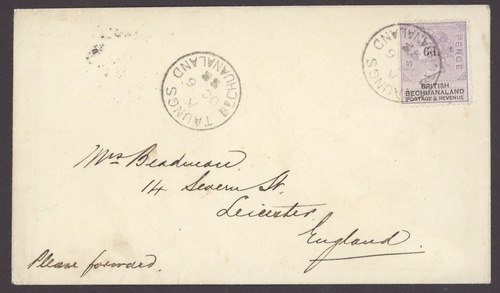 TAUNGS
BECHUANALAND
6d.
PENCE
BRITISH
BECHUANALAND
POSTAGE & REVENUE
Mrs Beadman.
14 Severn St.
Leicester
England.
Please forward.